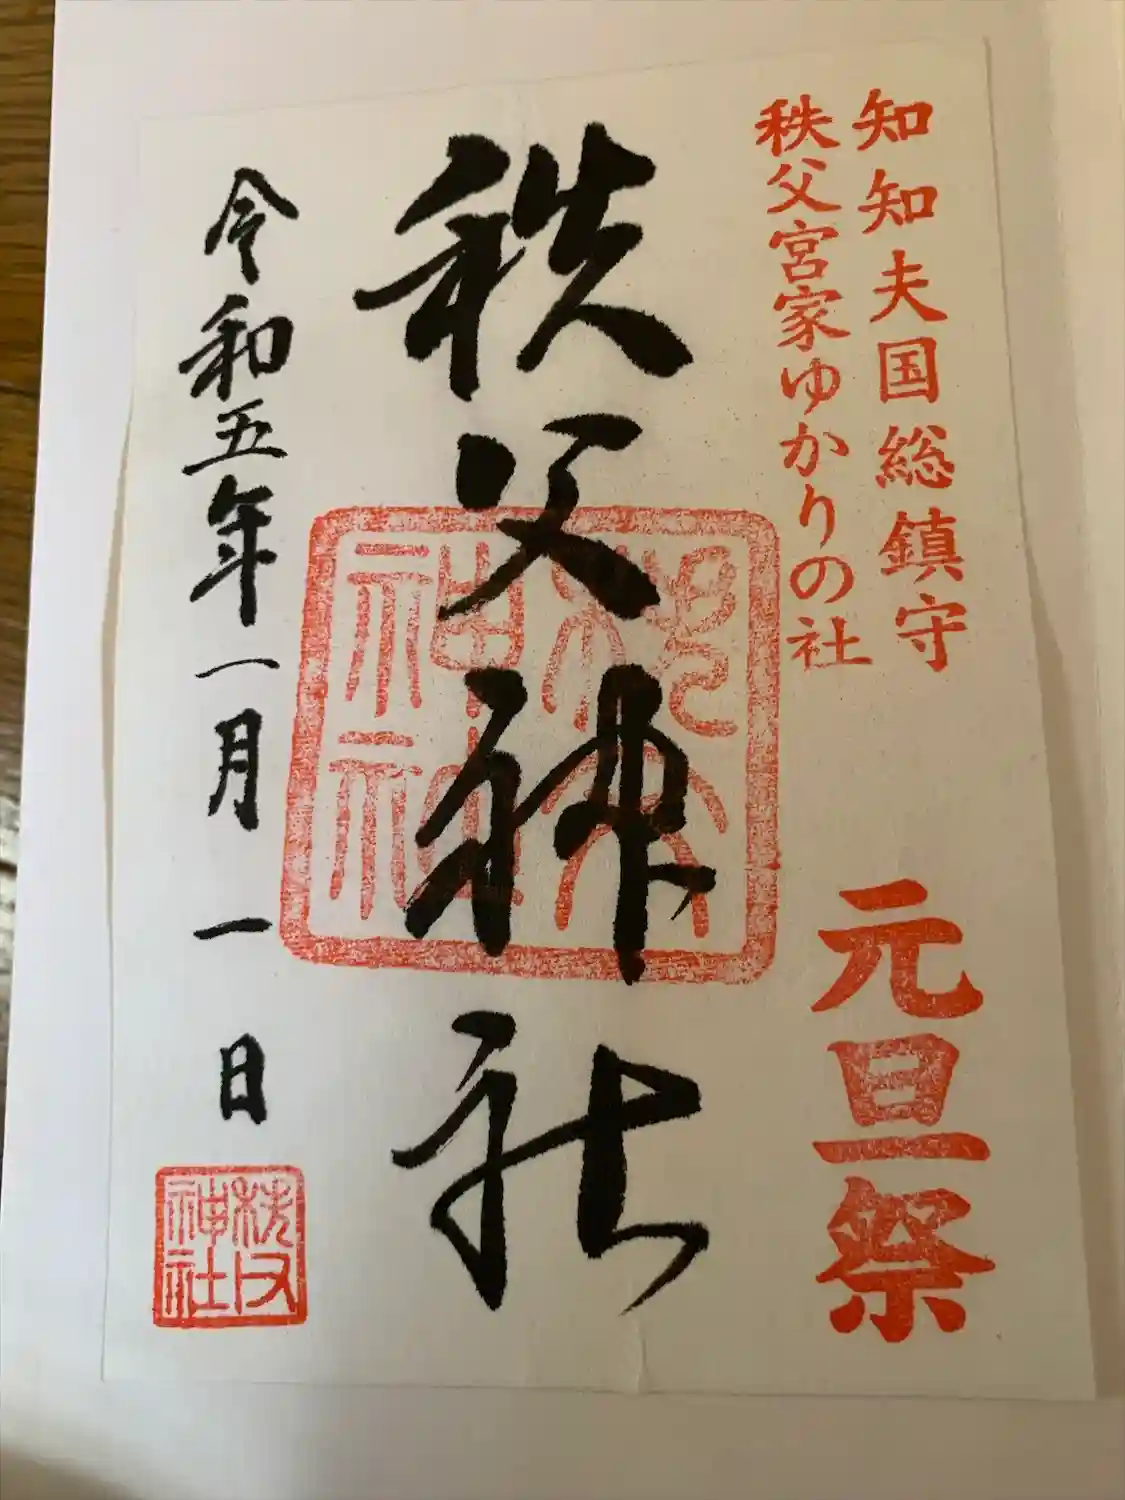 知知夫国総鎮守
秩父宮家ゆかりの社
元旦祭
秩父神社
秩父
神社
令和五年一月一日
秩父
神社